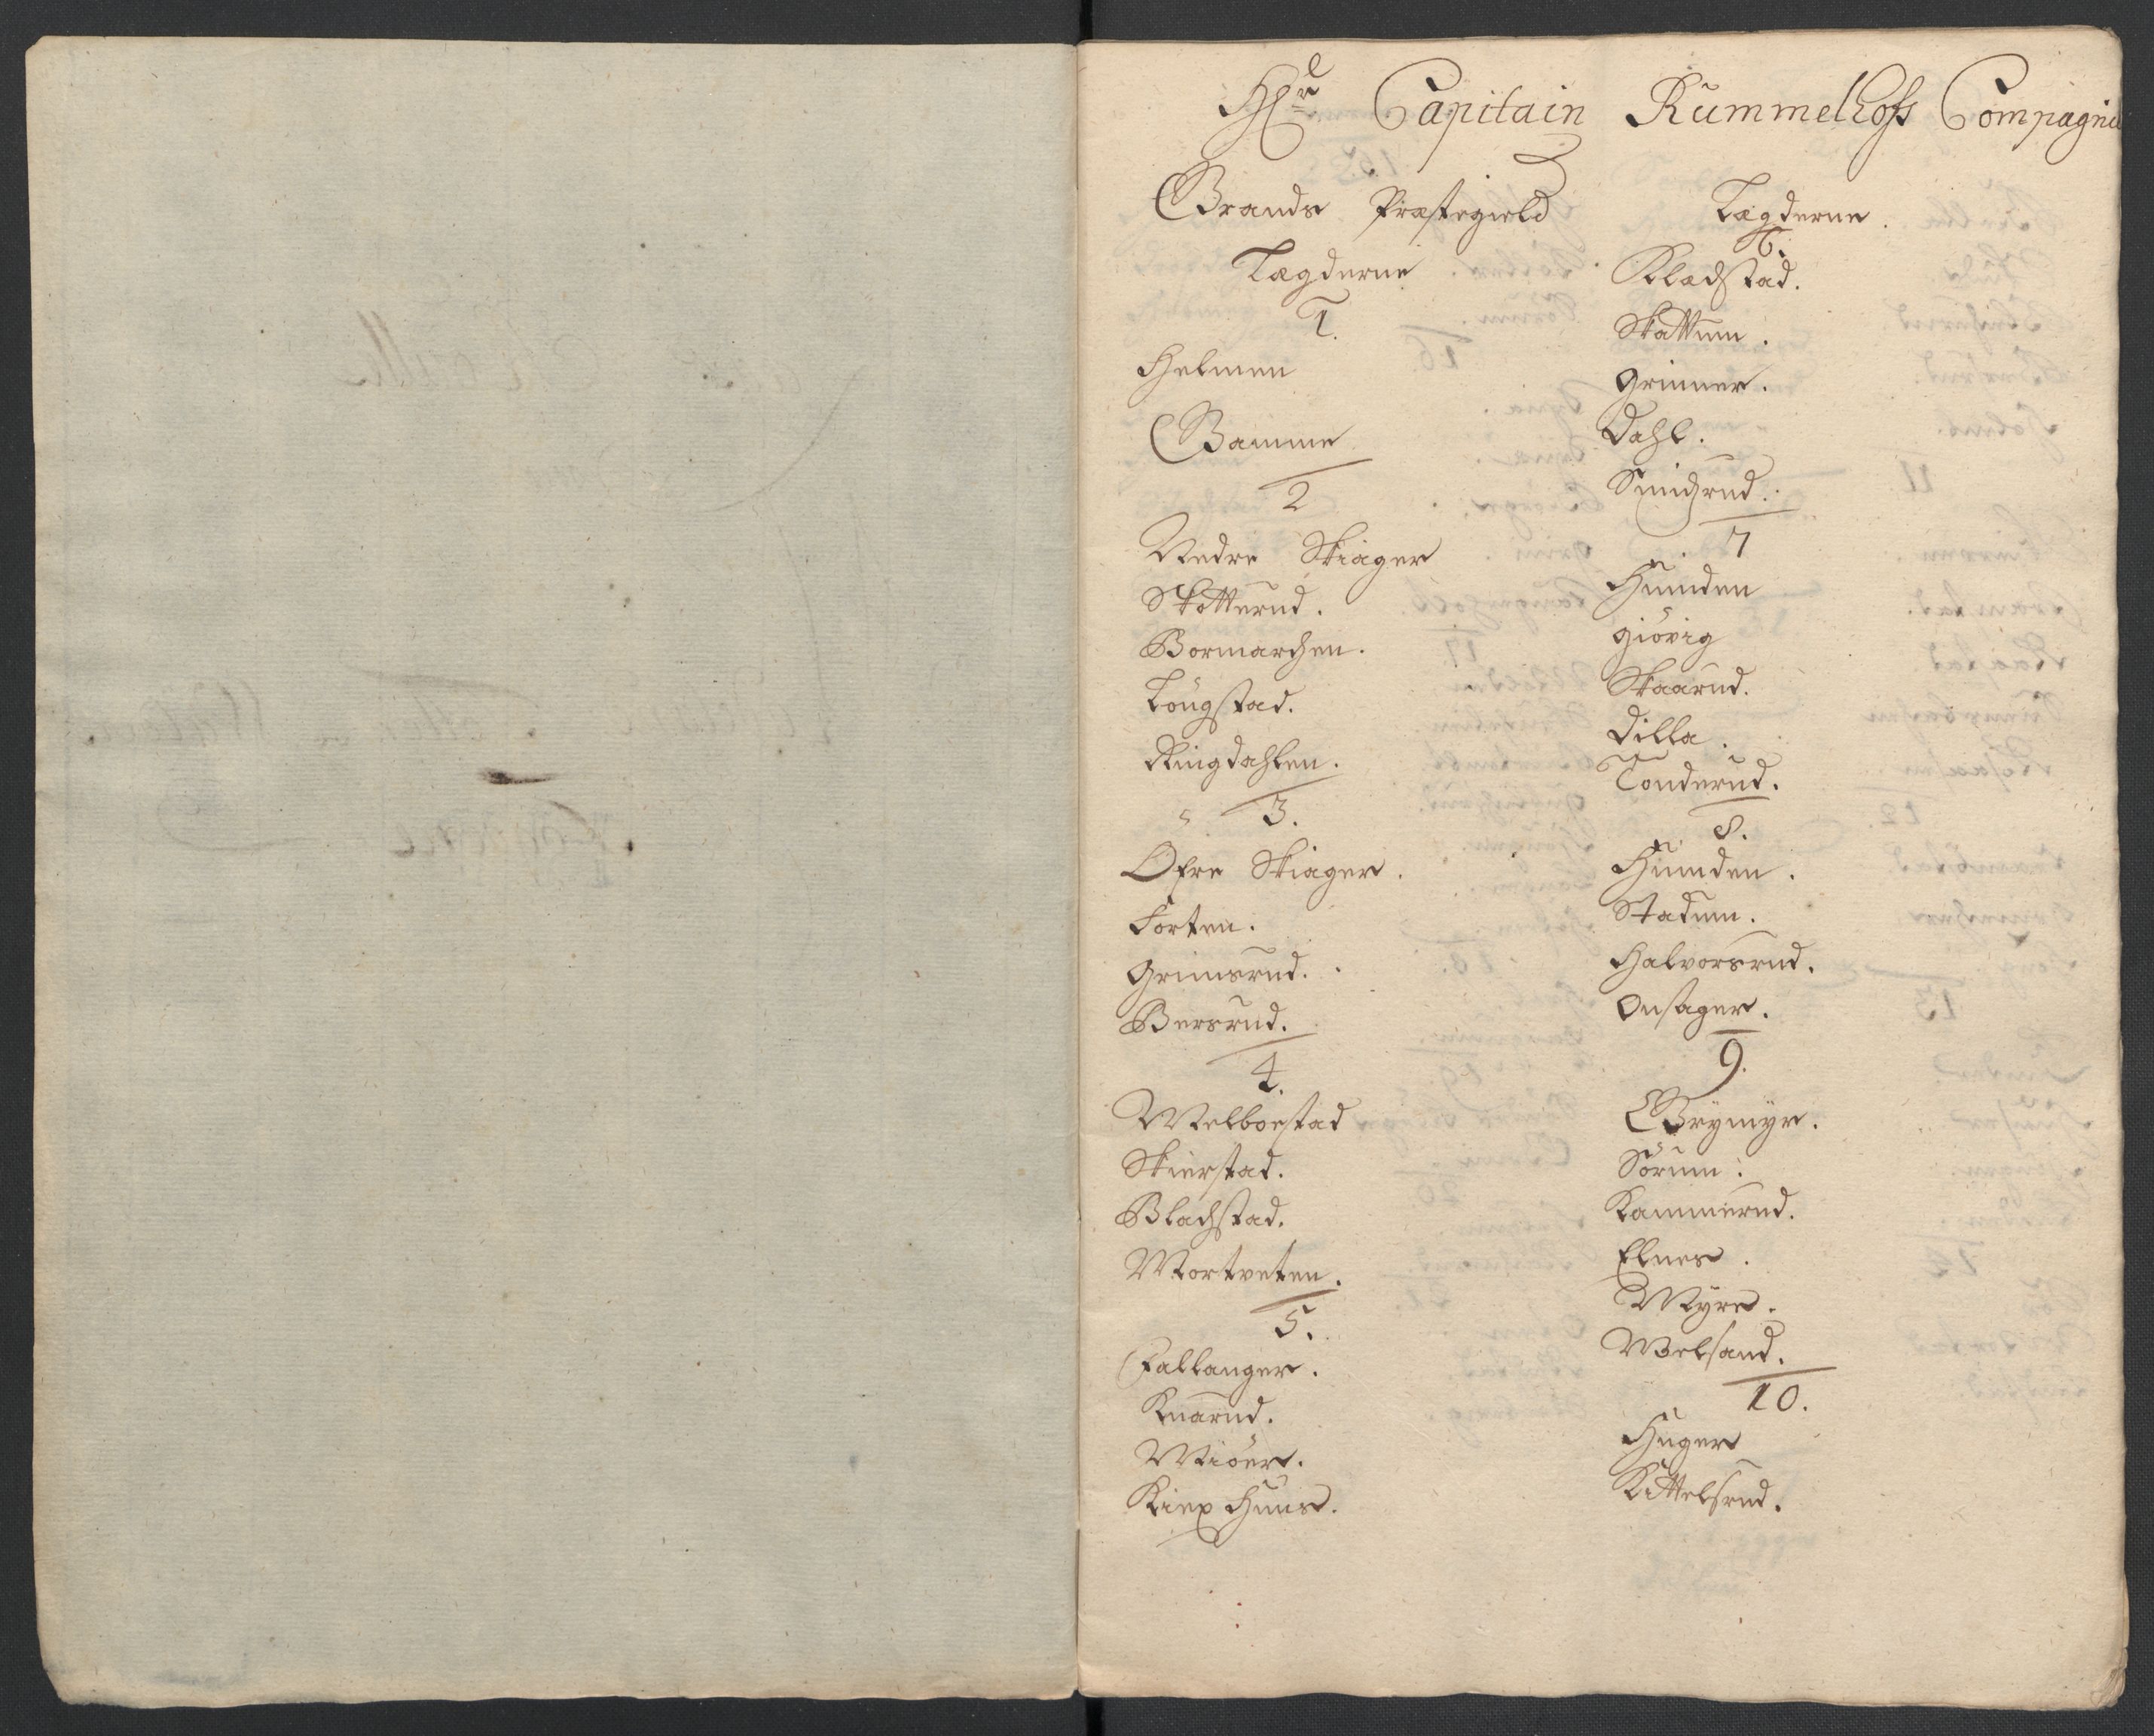 Hr Capitain Rummelhofs Compagnie
Brands Præstegield
Lægderne
1.
Helmen
Bamme
2
Nedre Skiager
Skotterud.
Bormarchen.
Lougstad.
Ringdahlen.
3.
Ofre Skiager.
Forten.
Grimsrud.
Bersrud.
4.
Melboestad
Skierstad.
Blachstad.
Mortveten.
5.
Fallanger.
Knarud.
Miöer.
Kiex Huus.
Lægderne.
6.
Kladstad.
Skattum.
Grinner.
Dahl.
Smidsrud.
7
Humden
Giövig
Skaarud.
Dilla.
Tonderud.
8.
Humden.
Stadum.
Halvorsrud.
Onsager.
9.
Brÿmÿr.
Sörum.
Kammerud.
Elnes.
Mÿre.
Welsand.
10.
Huger
Kittelsrud.